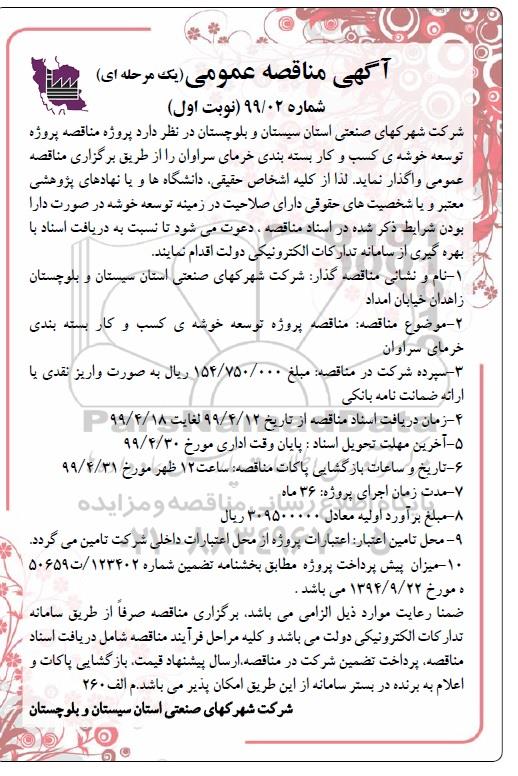 آگهی مناقصه عمومی(یک مرحله ای)
شماره ۹۹/۰۲ (نوبت اول)
شرکت شهرکهای صنعتی استان سیستان و بلوچستان در نظر دارد پروژه مناقصه پروژه
توسعه خوشه ی کسب و کار بسته بندی خرمای سراوان را از طریق برگزاری مناقصه
عمومی واگذار نماید. لذا از کلیه اشخاص حقیقی، دانشگاه ها و یا نهادهای پژوهشی
معتبر و یا شخصیت های حقوقی دارای صلاحیت در زمینه توسعه خوشه در صورت دارا
بودن شرایط ذکر شده در اسناد مناقصه ، دعوت می شود تا نسبت به دریافت اسناد با
بهره گیری از سامانه تدارکات الکترونیکی دولت اقدام نمایند.
۱-نام و نشانی مناقصه گذار: شرکت شهرکهای صنعتی استان سیستان و بلوچستان
زاهدان خیابان امداد
۲-موضوع مناقصه: مناقصه پروژه توسعه خوشه ی کسب و کار بسته بندی
خرمای سراوان
۳-سپرده شرکت در مناقصه: مبلغ ۱۵۴/۷۵۰/۰۰۰ ریال به صورت واریز نقدی یا
ارائه ضمانت نامه بانکی
۴-زمان دریافت اسناد مناقصه از تاریخ ۹۹/۴/۱۲ لغایت ۹۹/۴/۱۸
۵-آخرین مهلت تحویل اسناد : پایان وقت اداری مورخ ۹۹/۴/۳۰
۶-تاریخ و ساعات بازگشایی پاکات مناقصه: ساعت۱۲ ظهر مورخ ۹۹/۴/۳۱
۷-مدت زمان اجرای پروژه: ۳۶ ماه
۸-مبلغ برآورد اولیه معادل ۳۰۹۵۰۰۰۰۰ ریال
۹- محل تامین اعتبار: اعتبارات پروژه از محل اعتبارات داخلی شرکت تامین می گردد.
۱۰-میزان پیش پرداخت پروژه مطابق بخشنامه تضمین شماره ۱۲۳۴۰۲/ت۵۰۶۵۹
ه مورخ ۱۳۹۴/۹/۲۲ می باشد .
ضمنا رعایت موارد ذیل الزامی می باشد، برگزاری مناقصه صرفاً از طریق سامانه
تدارکات الکترونیکی دولت می باشد و کلیه مراحل فرآیند مناقصه شامل دریافت اسناد
مناقصه، پرداخت تضمین شرکت در مناقصه،ارسال پیشنهاد قیمت، بازگشایی پاکات و
اعلام به برنده در بستر سامانه از این طریق امکان پذیر می باشد.م الف۲۶۰
شرکت شهرکهای صنعتی استان سیستان و بلوچستان